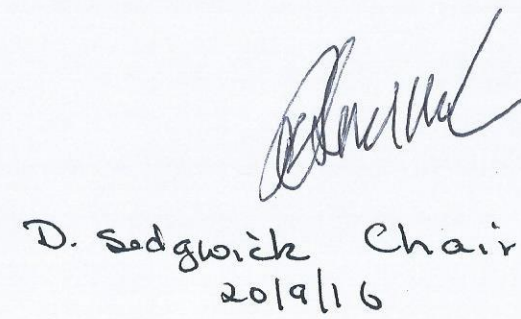 D. Sedgwick Chair
20/9/16